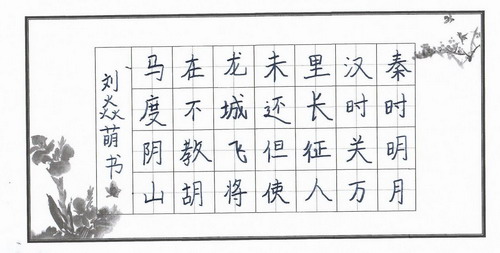 秦时明月
汉时关万
里长征人
未还但使
龙城飞将
在不教胡
马度阴山
刘焱萌书